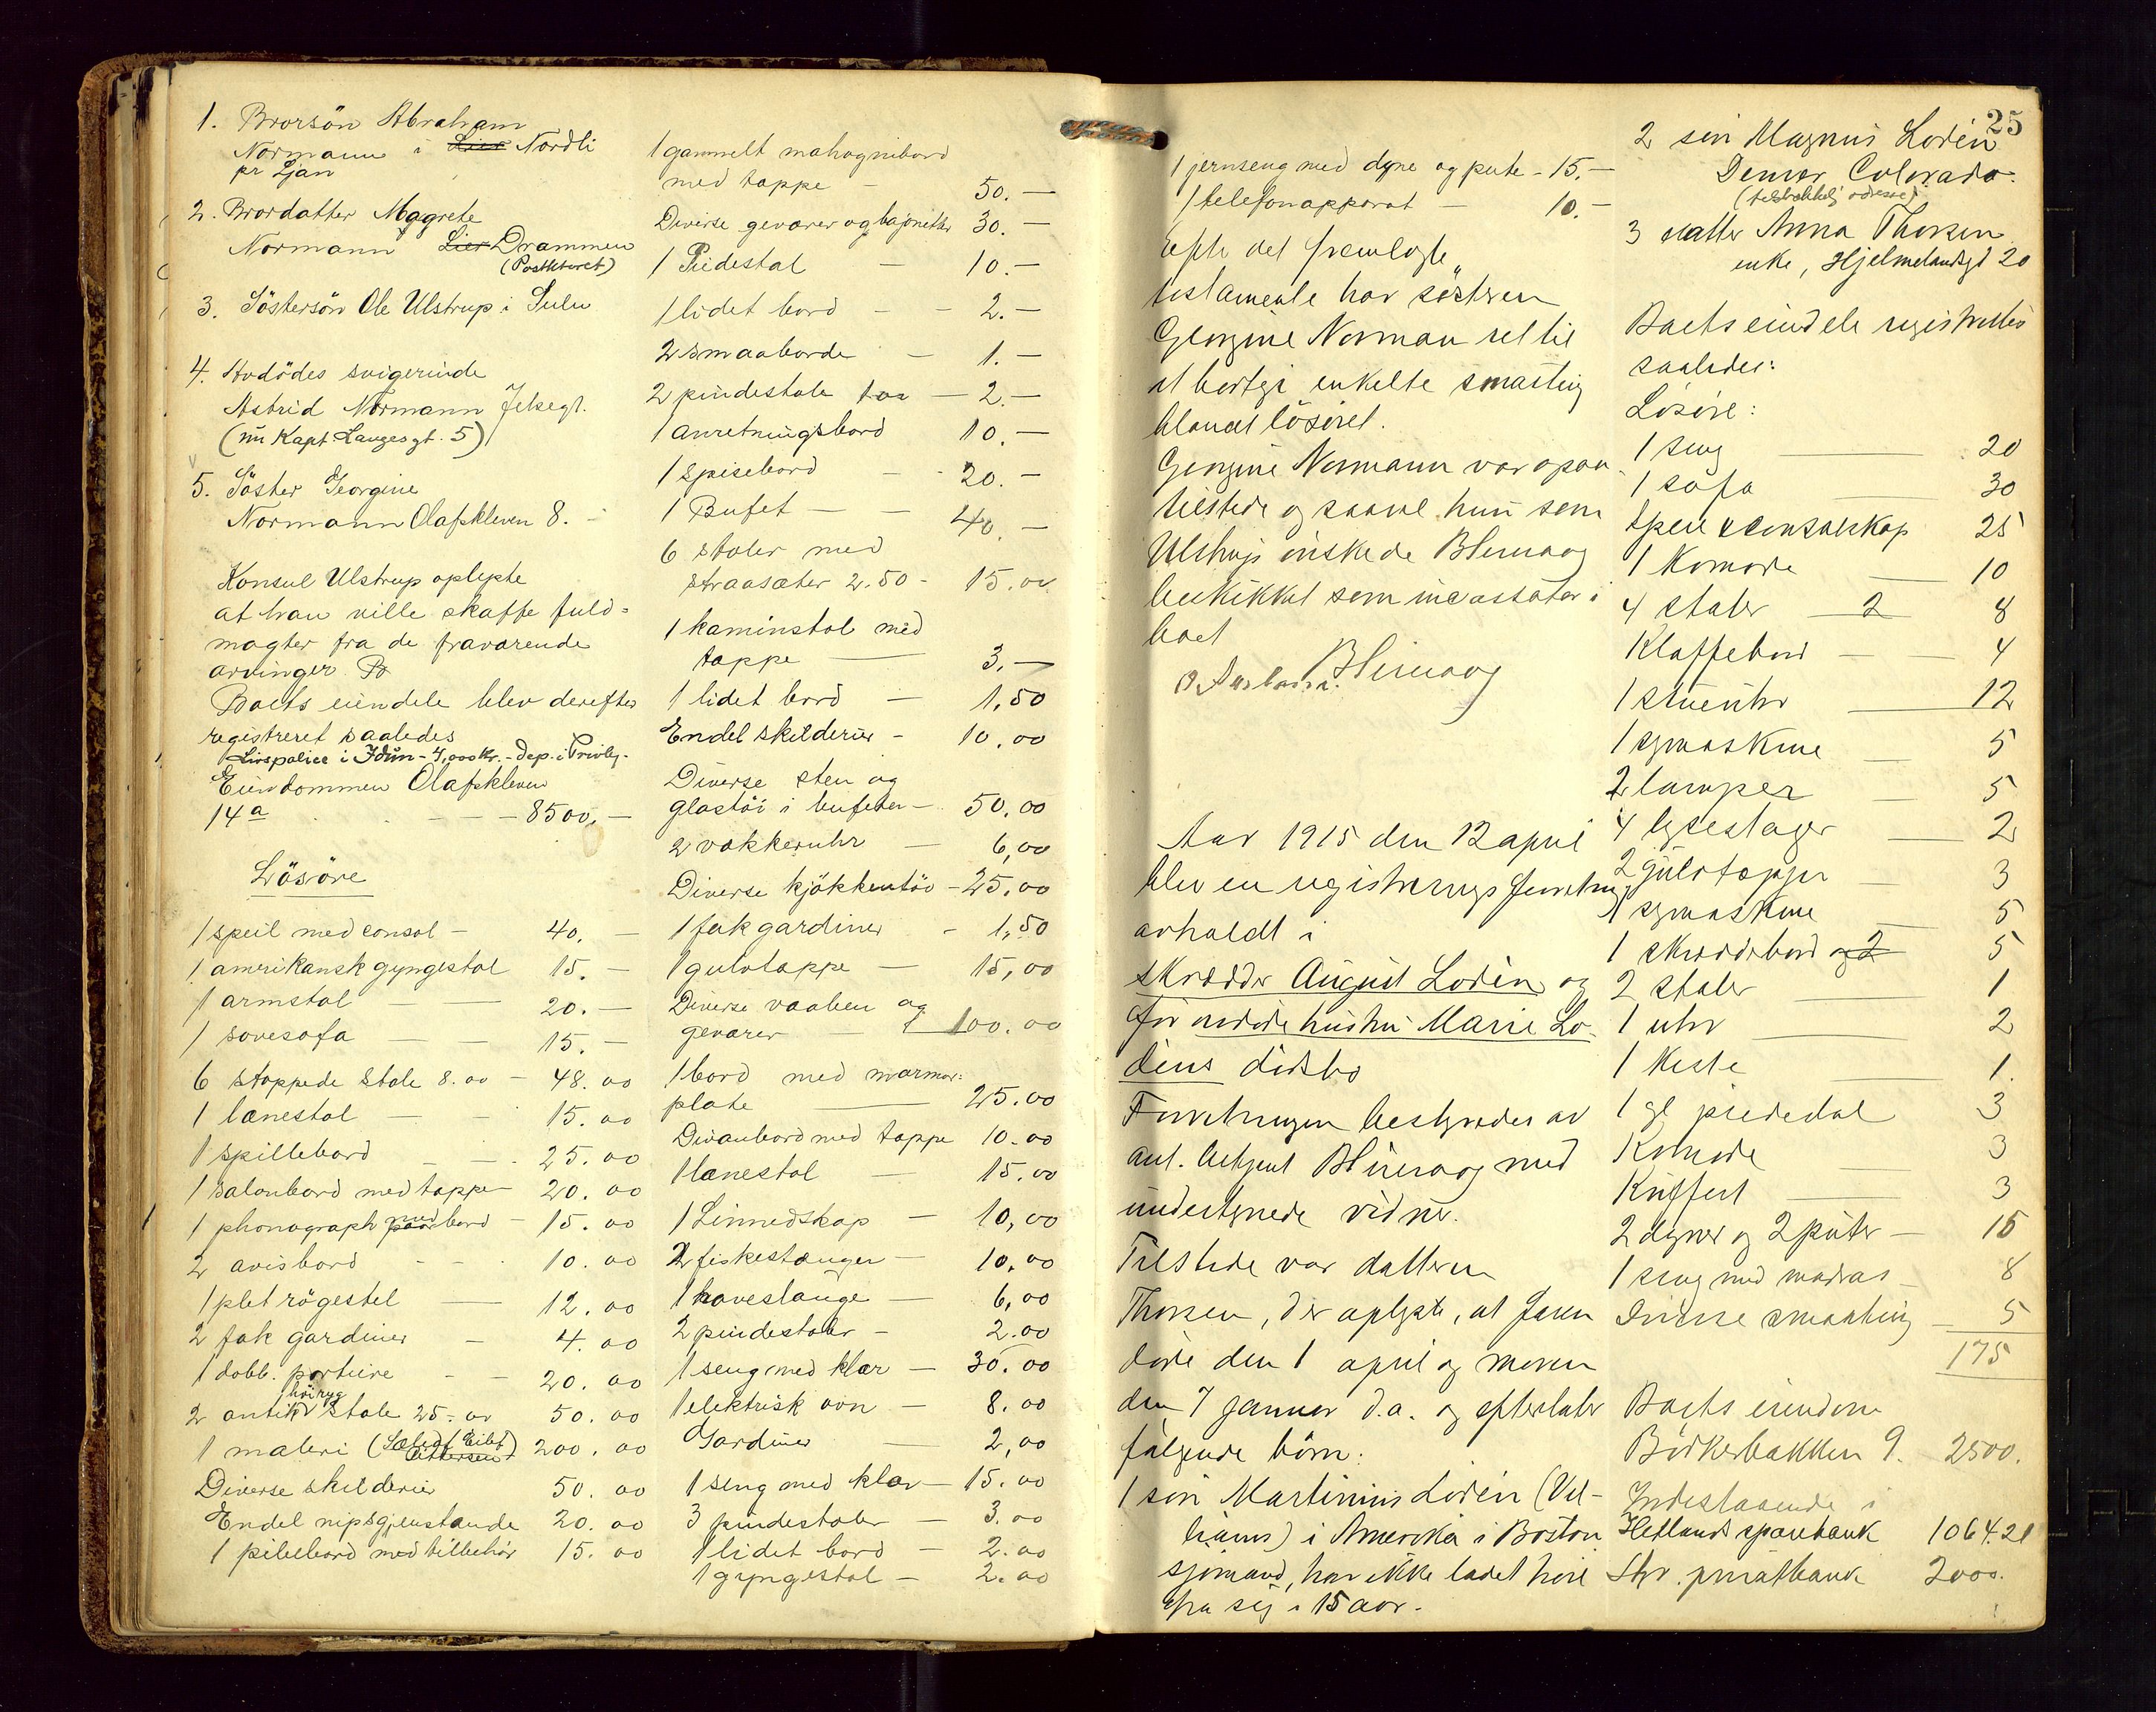 1. Brorsön Abraham
Normann i Lier Nordli
pr Ljan
2. Brordatter Magrete
Normann Lier Drammen
(Postkturet)
3. Söstersön Ole Ulstrup i Sulu
4. Avdödes svigerinde
Astrid Normann Jelsegt.
(nu Kapt Langesgt. 5)
5. Söster Georgine
Normann Olafskleven 8. -
Konsul Ulstrup oplyste
at han ville skaffe fuld-
magter fra de fraværende
arvinger
Boets eiendele blev derefter
registreret saaledes
Livspolice i Idun - 4,000 kr. - dep. i Privbk.
Eiendommen Olafskleven
14a - - - 8500. -
Lösöre
1 speil med consol - 40. -
1 amerikansk gyngestol 15. -
1 armstol - - 20. -
1 sovesofa - - 15. -
6 stoppede stole 8.00 - 48.00
1 lænestol - - 15.00
1 spillebord - - 25.00
1 salonbord med tæppe - 20.00
1 phonograph med bord - 15.00
2 avisbord - - 10.00
1 plet rögestel - 12.00
2 fak gardiner - 4.00
1 dobb. portiere - - 20.00
2 antike höiryg stole 25.00 50.00
1 maleri (Solnedg Eilef Pettersen) 200.00
Diverse skilderier 50.00
Endel nipsgjenstande 20.00
1 pibebord med tilbehör 15.00
1 gammelt mahognibord
med tæppe - 50. -
Diverse geværer og bajonetter 30. -
1 Piedestal - 10. -
1 lidet bord - - 2. -
2 smaaborde - 1. -
2 pindestole - 2. -
1 anretningsbord 10. -
1 spisebord - - 20. -
1 Bufet - - 40. -
6 stoler med
straasæter 2.50 - 15.00
1 kaminstol med
tæppe - 3. -
1 lidet bord - 1,50
Endel skilderier - 10,00
Diverse sten og
glastöi i bufeten - 50,00
2 vækkeruhr - 6,00
Diverse kjökkentöi - 25,00
1 fak gardiner - 1,50
1 gulvtæppe - 15,00
Diverse vaaben og
geværer - 100.00
1 bord med marmor:
plate - 25.00
Divanbord med tæppe 10.00
1 lænestol - 15.00
1 Linnedskap - 10,00
2 fiskestænger - 10,00
1 haveslange - 6,00
2 pindestoler - 2.00
1 seng med klær - 30.00
1 elektrisk ovn - 8.00
Gardiner - 2,00
1 seng med klær - 15.00
3 pindestoler - 3.00
1 lidet bord - 2.00
1 gyngestol - 2.00
1 jernseng med dyne og pute - 15. -
1 telefonapparat - 10. -
efter det fremlagte
testamente har söstren
Georgine Norman ret til
at bortgi enkelte smaating
blandt lösöret.
Georgine Normann var ogsaa
tilstede og saavel hun som
Ulstrup önskede BHimoog
beskikket som incassator i
boet
BHimoog
Aar 1915 den 12 april
blev en registreringsforretning
avholdt i
skrædder August Lodén og
för avdöde hustru Marie Lo-
déns dödsbo
Forretningen bestyredes av
aut. betjent BHimoog med
undertegnede vidner.
Tilstede var datteren
Thorsen, der oplyste, at faren
döde den 1 april og moren
den 7 januar d.a. og efterlater
fölgende börn:
1 sön Martinius Lodén (Vil-
liams) i Amerika i Boston
sjömand, har ikke ladet höre
fra sig i 15 aar.
25
2 sön Magnus Lodén
Denver Colorado.
(tilstrækkelig adresse)
3 datter Anna Thorsen
enke, Hjelmelandsgt 20
Boets eiendele registrertes
saaledes:
Lösöre:
1 seng 20
1 sofa 30
speil & consolskap 25
1 Komode 10
4 stoler 2 8
Klaffebord - 4
1 stueuhr 12
1 symaskine 5
2 lamper 5
4 lysestager 2
2 gulvtæpper 3
1 symaskine 5
1 skrædderbord og 2 5
2 stoler 1
1 uhr 2
1 kiste 1.
1 gl piedestal 3
Komode 3
Kuffert 3
2 dyner og 2 puter - 15
1 seng med madras - 8
Diverse smaating - 5
175
Boets eiendom
Börkebakken 9. 2500.
Indestaaende i
Hetlands sparebank 1064.21
Stv. privatbank 2000.